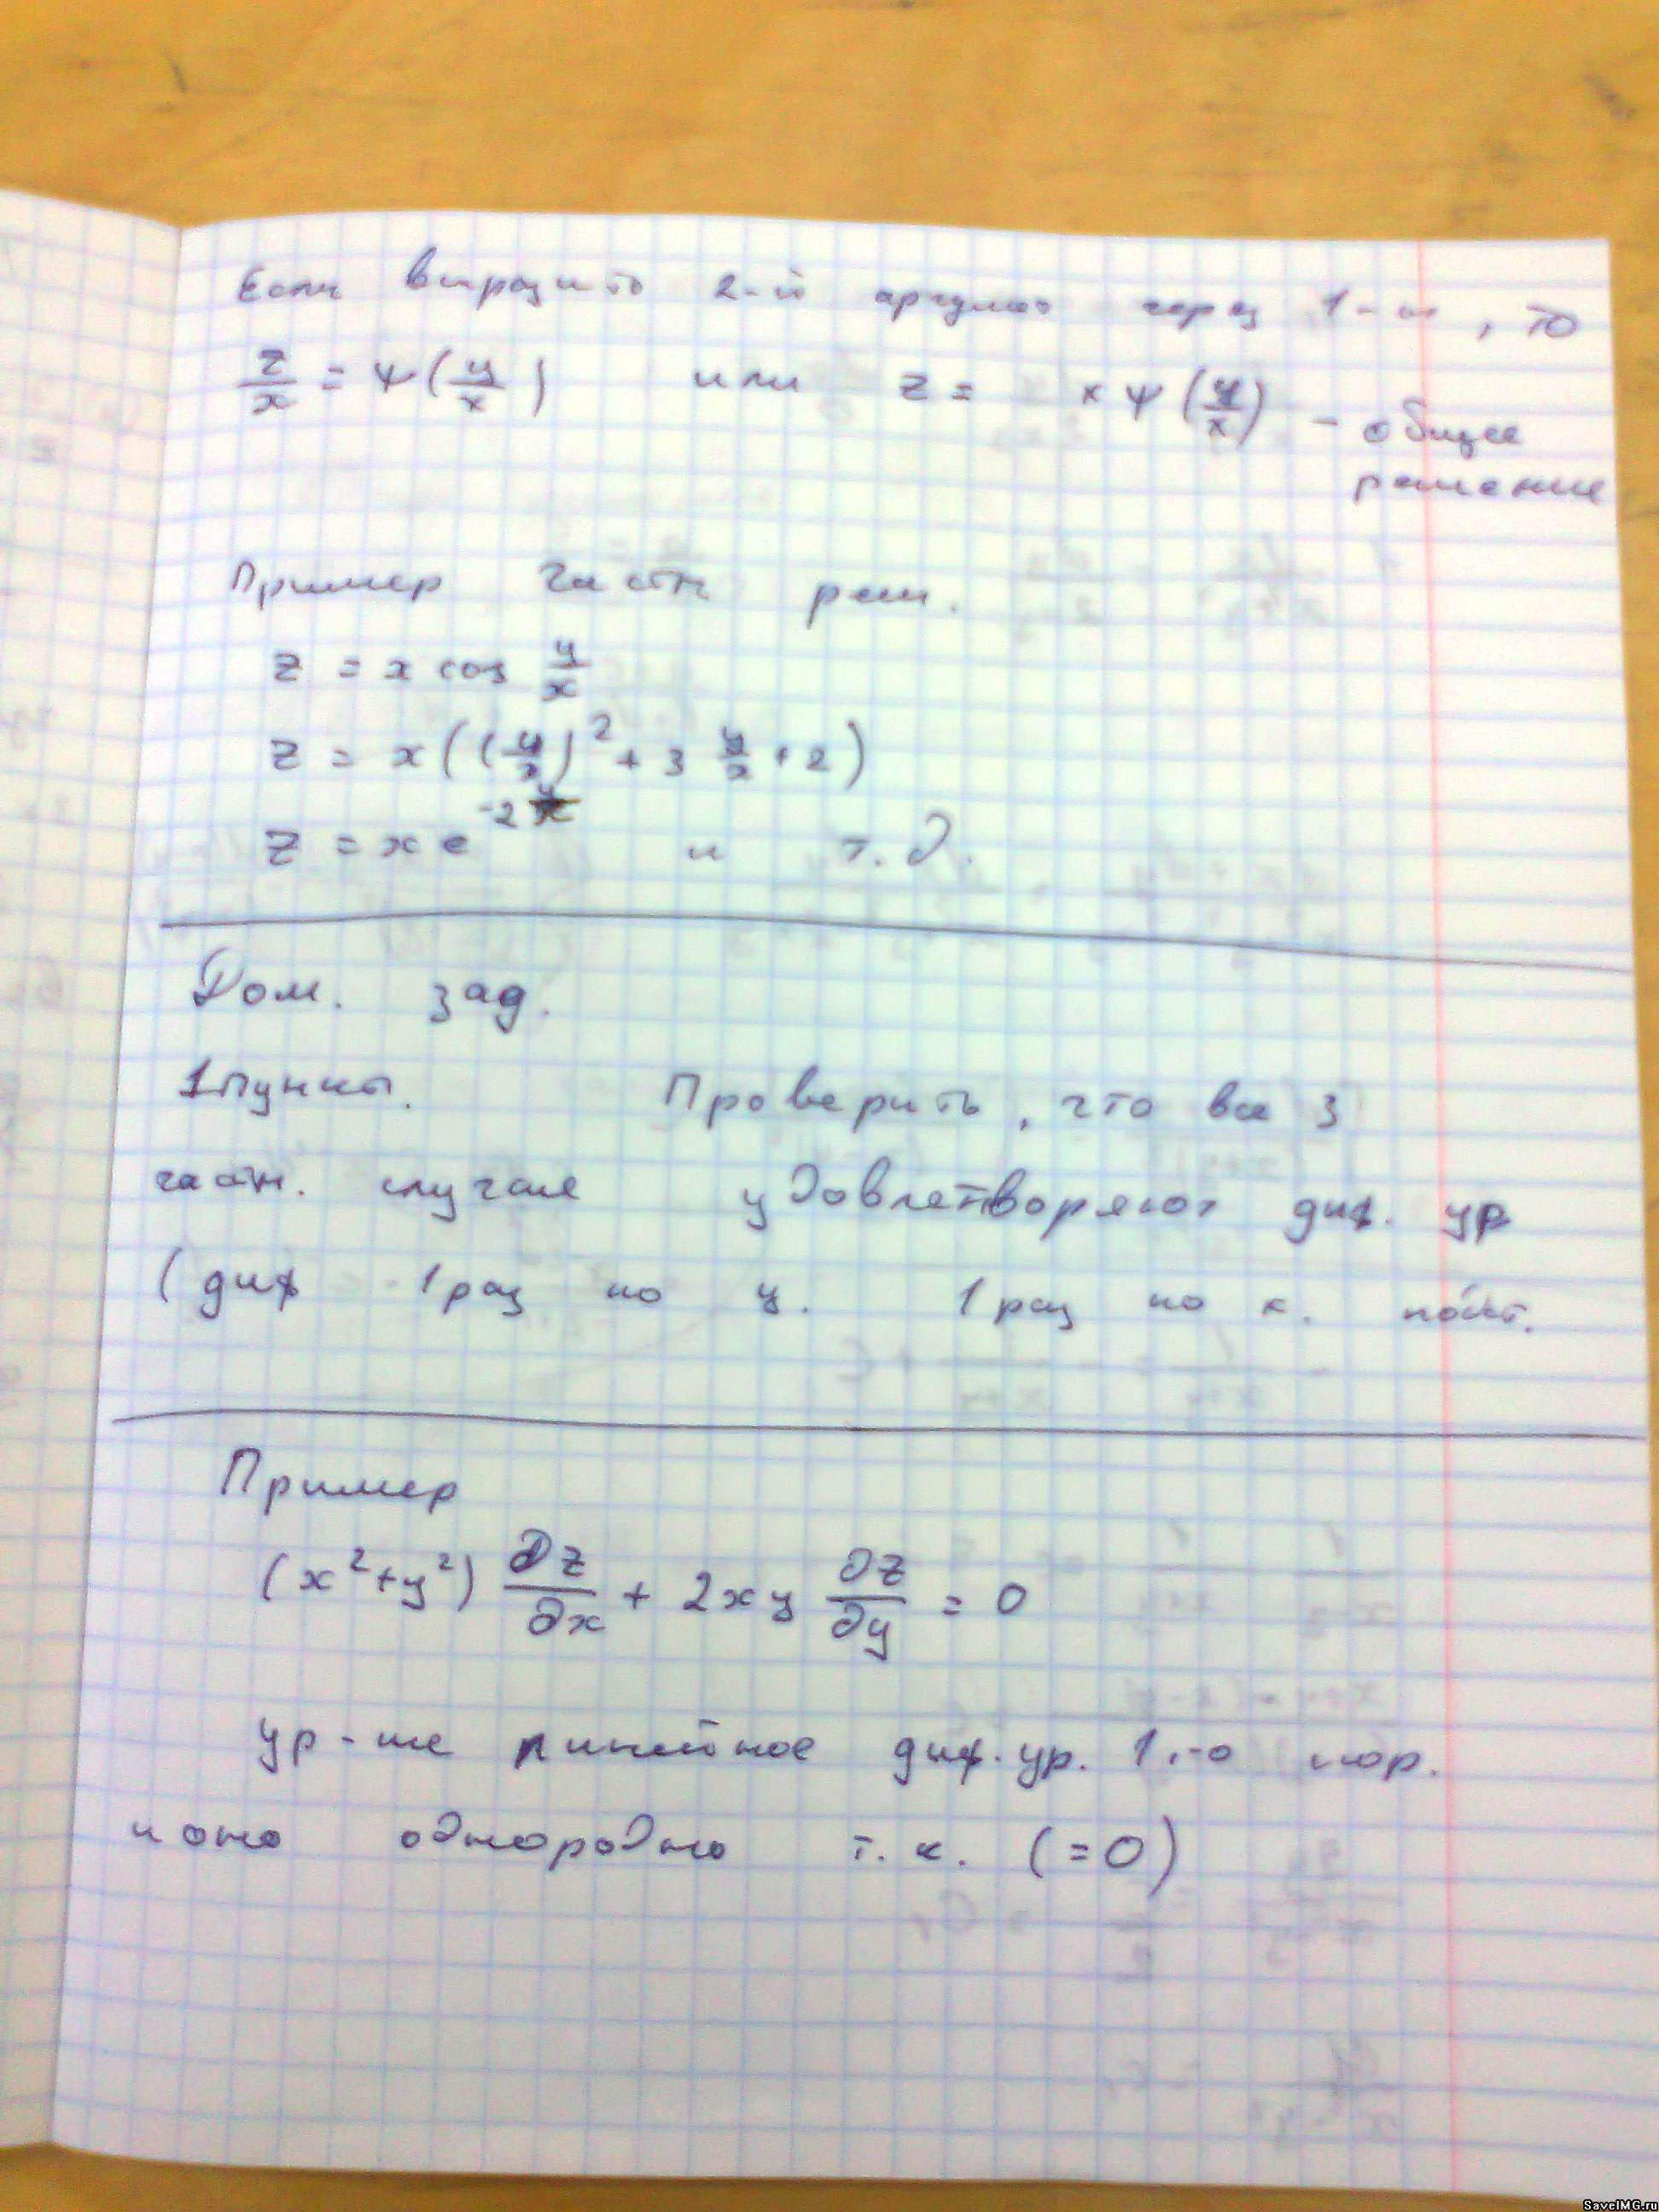 Если выразить 2-й аргумент через 1-й, то
z/x = ψ(y/x) или z = xψ(y/x) - общее
решение
Пример частн реш.
z = x cos y/x
z = x((y/x)² + 3 y/x + 2)
z = x e^(-2 y/x) и т.д.
Дом. зад.
1 пункт. Проверить, что все 3
частн. случае удовлетворяют диф. ур
(диф 1 раз по y. 1 раз по x.
Пример
(x²+y²) ∂z/∂x + 2xy ∂z/∂y = 0
ур-ние линейное диф. ур. 1-о пор.
и оно однородно т.к. (=0)
SaveIMG.ru